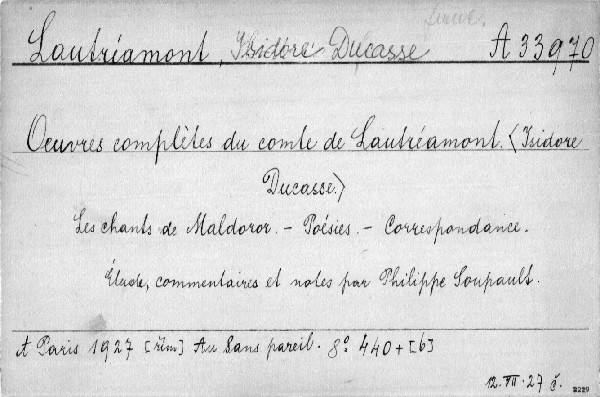 furuc.
Lautréamont, Isidore Ducasse A 33970
Oeuvres complètes du comte de Lautréamont. <Isidore
Ducasse.>
Les chants de Maldoror. - Poésies. - Correspondance.
Étude, commentaires et notes par Philippe Soupault.
A Paris 1927 [řím] Au Sans pareil. 8° 440+[6]
12.VII.27 č. 2229